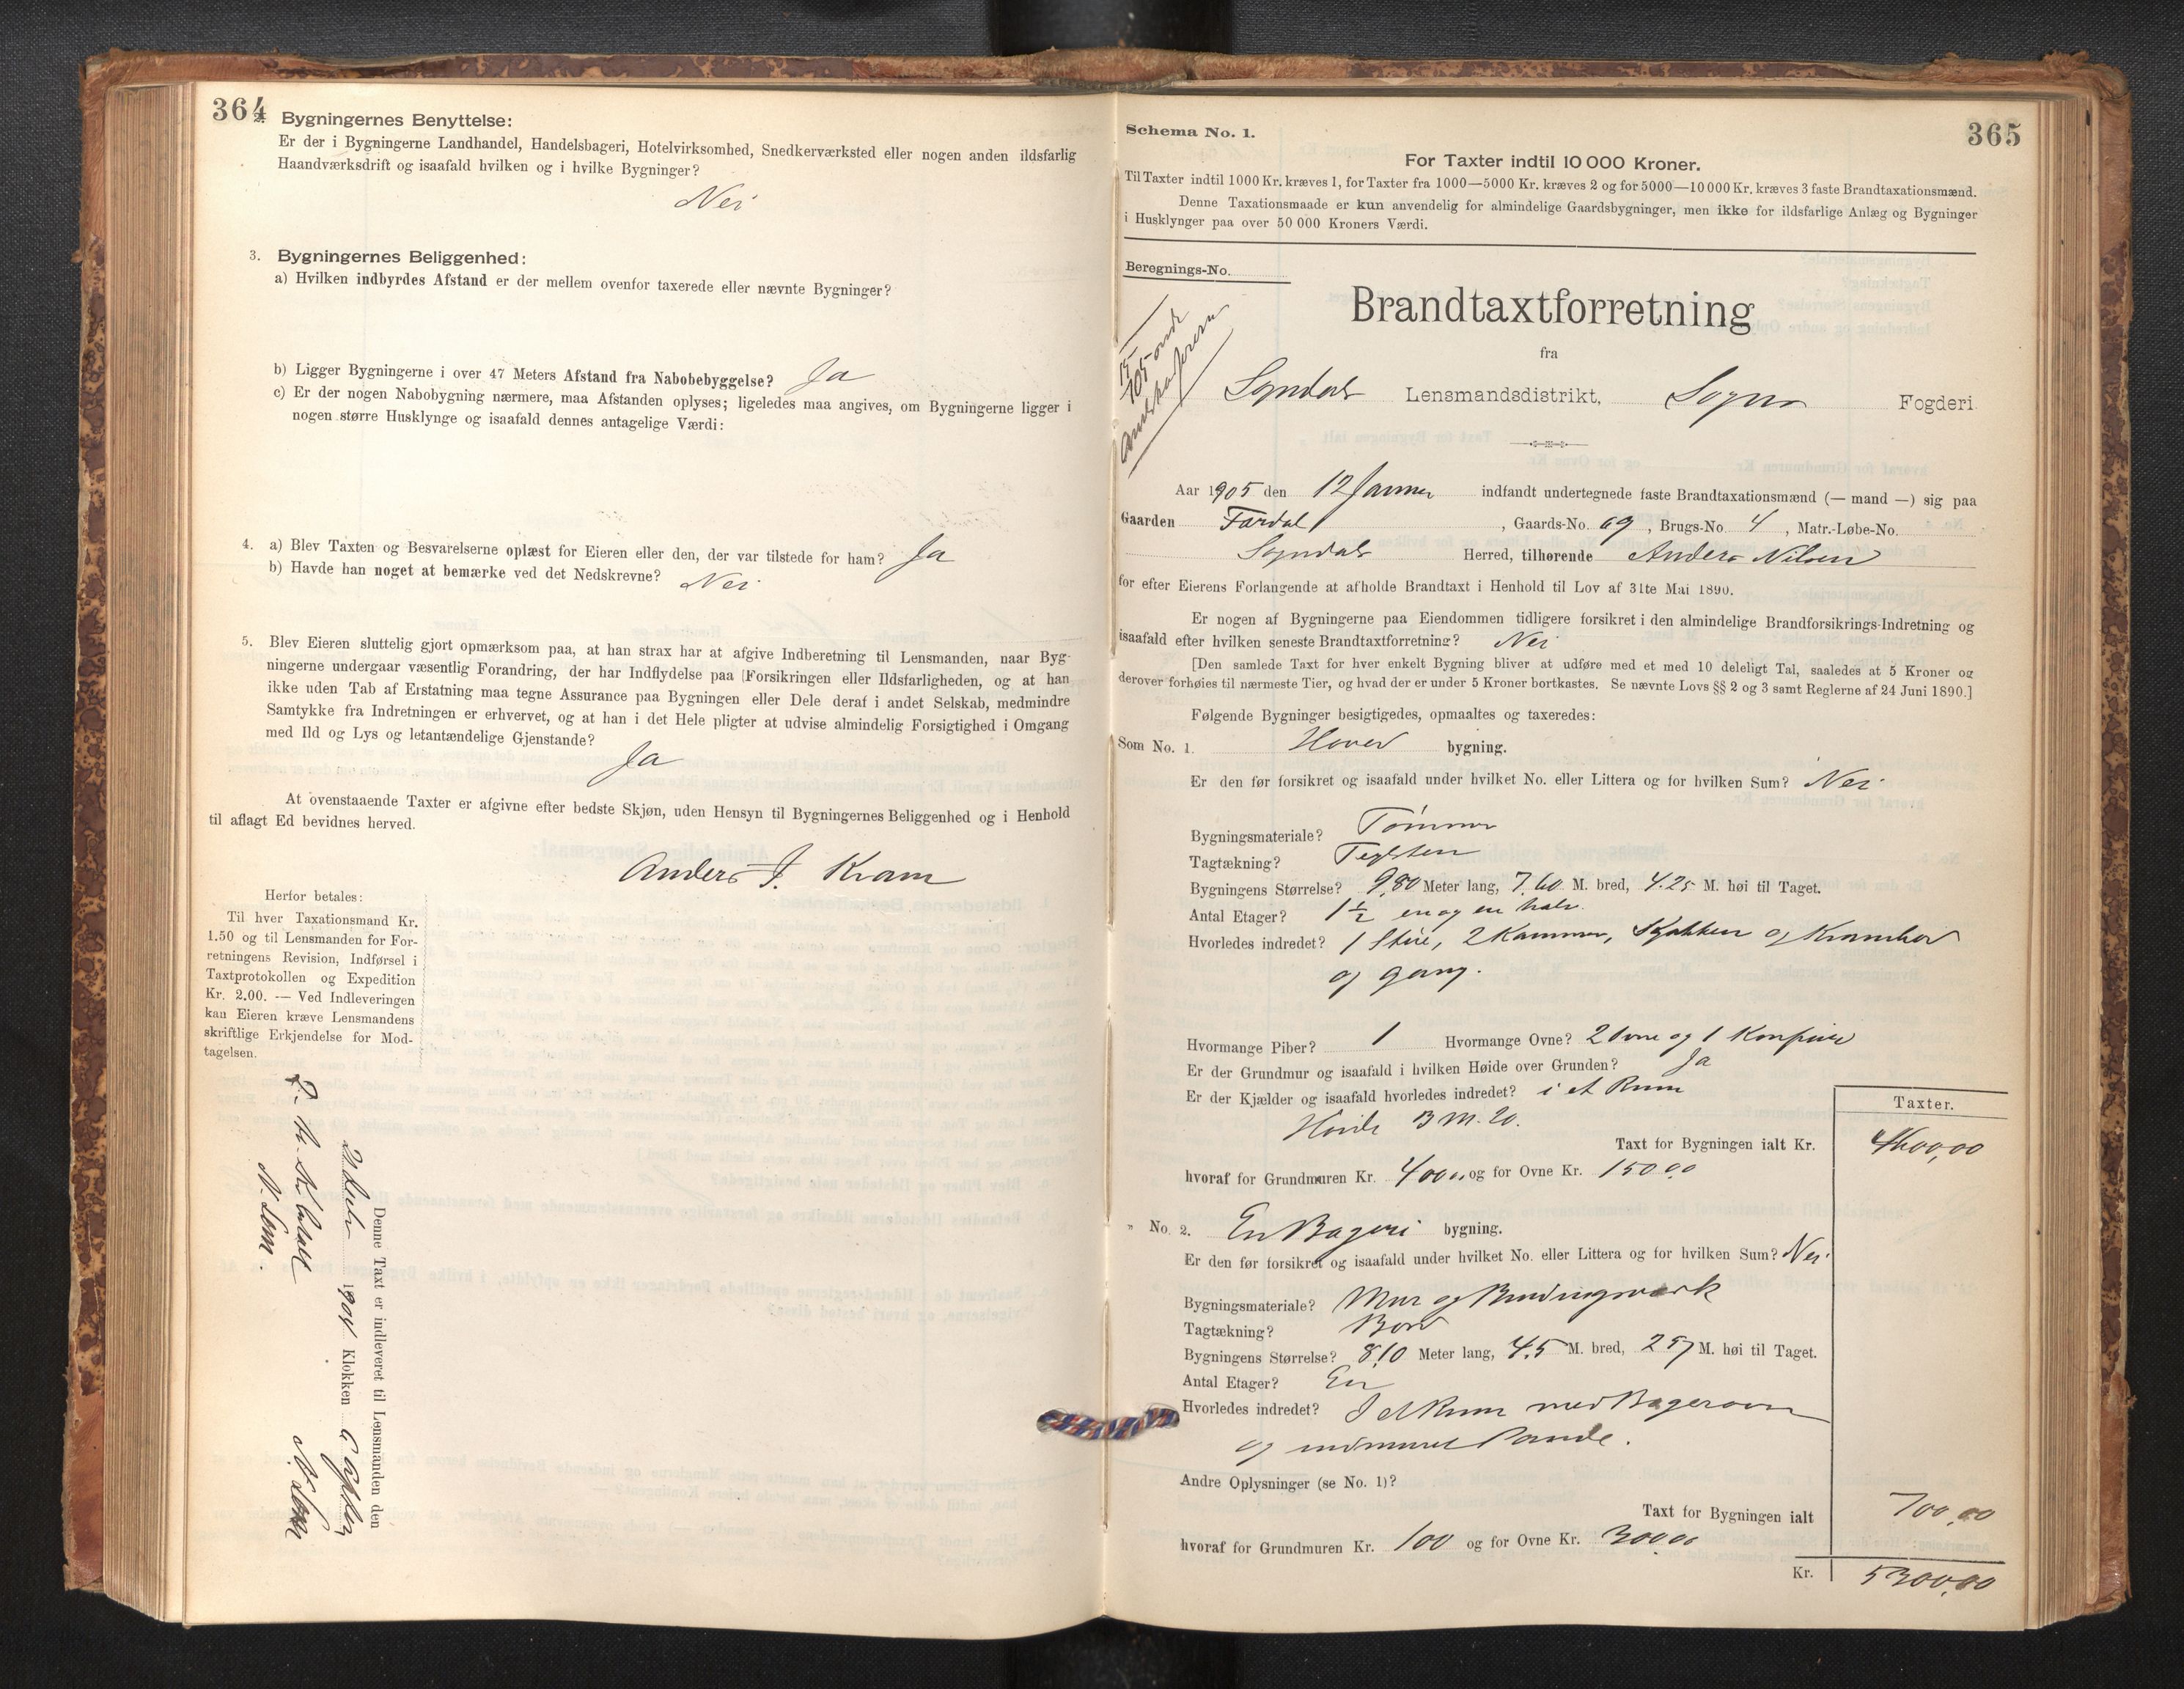 364
Bygningernes Benyttelse:
Er der i Bygningerne Landhandel, Handelsbageri, Hotelvirksomhed, Snedkerværksted eller nogen anden ildsfarlig
Haandværksdrift og isaafald hvilken og i hvilke Bygninger?
Nei
3. Bygningernes Beliggenhed:
a) Hvilken indbyrdes Afstand er der mellem ovenfor taxerede eller nævnte Bygninger?
b) Ligger Bygningerne i over 47 Meters Afstand fra Nabobebyggelse? Ja
c) Er der nogen Nabobygning nærmere, maa Afstanden oplyses; ligeledes maa angives, om Bygningerne ligger i
nogen større Husklynge og isaafald dennes antagelige Værdi:
4. a) Blev Taxten og Besvarelserne oplæst for Eieren eller den, der var tilstede for ham? Ja
b) Havde han noget at bemærke ved det Nedskrevne? Nei
5. Blev Eieren sluttelig gjort opmærksom paa, at han strax har at afgive Indberetning til Lensmanden, naar Byg-
ningerne undergaar væsentlig Forandring, der har Indflydelse paa Forsikringen eller Ildsfarligheden, og at han
ikke uden Tab af Erstatning maa tegne Assurance paa Bygningen eller Dele deraf i andet Selskab, medmindre
Samtykke fra Indretningen er erhvervet, og at han i det Hele pligter at udvise almindelig Forsigtighed i Omgang
med Ild og Lys og letantændelige Gjenstande?
Ja
At ovenstaaende Taxter er afgivne efter bedste Skjøn, uden Hensyn til Bygningernes Beliggenhed og i Henhold
til aflagt Ed bevidnes herved.
Anders J. Kram
Herfor betales:
Til hver Taxationsmand Kr.
1.50 og til Lensmanden for For-
retningens Revision, Indførsel i
Taxtprotokollen og Expedition
Kr. 2.00. — Ved Indleveringen
kan Eieren kræve Lensmandens
skriftlige Erkjendelse for Mod-
tagelsen.
Denne Taxt er indleveret til Lensmanden den
1904 Klokken 6
365
Schema No. 1.
For Taxter indtil 10 000 Kroner.
Til Taxter indtil 1000 Kr. kræves 1, for Taxter fra 1000—5000 Kr. kræves 2 og for 5000—10 000 Kr. kræves 3 faste Brandtaxationsmænd.
Denne Taxationsmaade er kun anvendelig for almindelige Gaardsbygninger, men ikke for ildsfarlige Anlæg og Bygninger
i Husklynger paa over 50 000 Kroners Værdi.
Beregnings-No.
Brandtaxtforretning
fra
Sogndals Lensmandsdistrikt, Sogns Fogderi
Aar 1905 den 12 Januar indfandt undertegnede faste Brandtaxationsmænd (— mand —) sig paa
Gaarden Fardal, Gaards-No. 69, Brugs-No. 4, Matr.-Løbe-No.
Sogndals Herred, tilhørende Anders Nilsen
for efter Eierens Forlangende at afholde Brandtaxt i Henhold til Lov af 31te Mai 1890.
Er nogen af Bygningerne paa Eiendommen tidligere forsikret i den almindelige Brandforsikrings-Indretning og
isaafald efter hvilken seneste Brandtaxtforretning? Nei
[Den samlede Taxt for hver enkelt Bygning bliver at udføre med et med 10 deleligt Tal, saaledes at 5 Kroner og
derover forhøies til nærmeste Tier, og hvad der er under 5 Kroner bortkastes. Se nævnte Lovs §§ 2 og 3 samt Reglerne af 24 Juni 1890.]
Følgende Bygninger besigtigedes, opmaaltes og taxeredes:
Som No. 1. Hoved bygning.
Er den før forsikret og isaafald under hvilket No. eller Littera og for hvilken Sum? Nei
Bygningsmateriale? Tømmer
Tagtækning? Teglsten
Bygningens Størrelse? 9,80 Meter lang, 7,60 M. bred, 4.25 M. høi til Taget.
Antal Etager? 1 1/2 en og en halv
Hvorledes indredet? 1 Stue, 2 Kammer, Kjøkken og Krambod
og gang.
Hvormange Piber? 1 Hvormange Ovne? 2 Ovne og 1 Komfur
Er der Grundmur og isaafald i hvilken Høide over Grunden? Ja
Er der Kjælder og isaafald hvorledes indredet? i et Rum
Høide
Taxter.
Taxt for Bygningen ialt Kr. 4600,00
hvoraf for Grundmuren Kr. 400,00 og for Ovne Kr. 150,00
" No. 2. En Bageri bygning.
Er den før forsikret og isaafald under hvilket No. eller Littera og for hvilken Sum? Nei
Bygningsmateriale? Mur og Bindingsværk
Tagtækning? Bord
Bygningens Størrelse? 8,10 Meter lang, 4.5 M. bred, 2 57 M. høi til Taget.
Antal Etager? En
Hvorledes indredet? I et Rum med Bagerovn
og indmuret Pande.
Andre Oplysninger (se No. 1)?
Taxt for Bygningen ialt 700,00
hvoraf for Grundmuren Kr. 100 og for Ovne Kr. 300,00
Kr. 5300,00